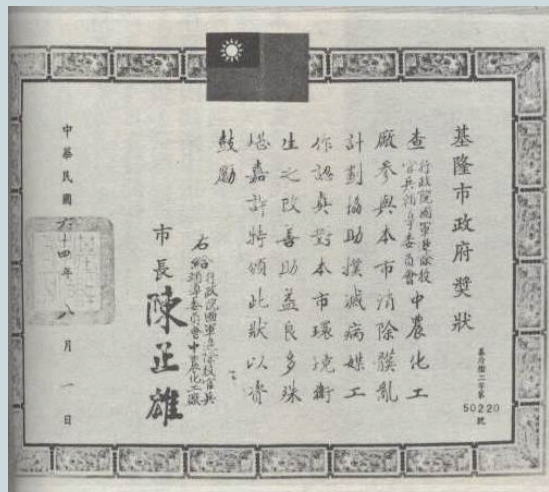 基隆市政府獎狀
基府衛二字第
50220
號
查行政院國軍退除役官兵輔導委員會中農化工
廠參與本市消除髒亂
計劃協助撲滅病媒工
作認真對本市環境衛
生之改善助益良多殊
堪嘉許特頒此狀以資
鼓勵
右給行政院國軍退除役官兵
輔導委員會中農化工廠
市長陳正雄
中華民國六十四年八月一日